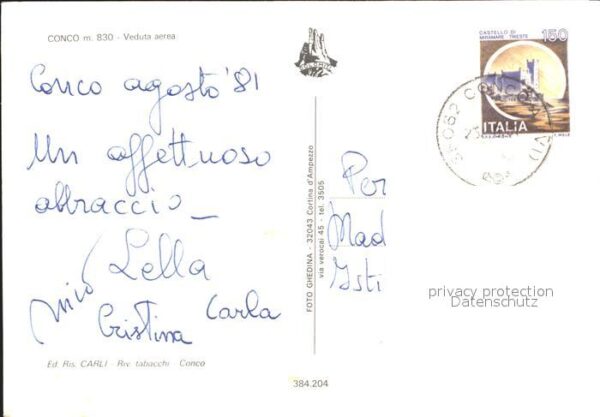 CONCO m. 830 - Veduta aerea
Conco agosto '81
Un affettuoso
abbraccio _
Lella
Carla
Cristina
Ed. Ris. CARLI - Riv. tabacchi - Conco
FOTO GHEDINA - 32043 Cortina d'Ampezzo
via verocai 45 - tel. 3505
384.204
CASTELLO DI
MIRAMARE TRIESTE
150
ITALIA
36062 CONCO (VI)
Per
Mad
Isti
privacy protection
Datenschutz